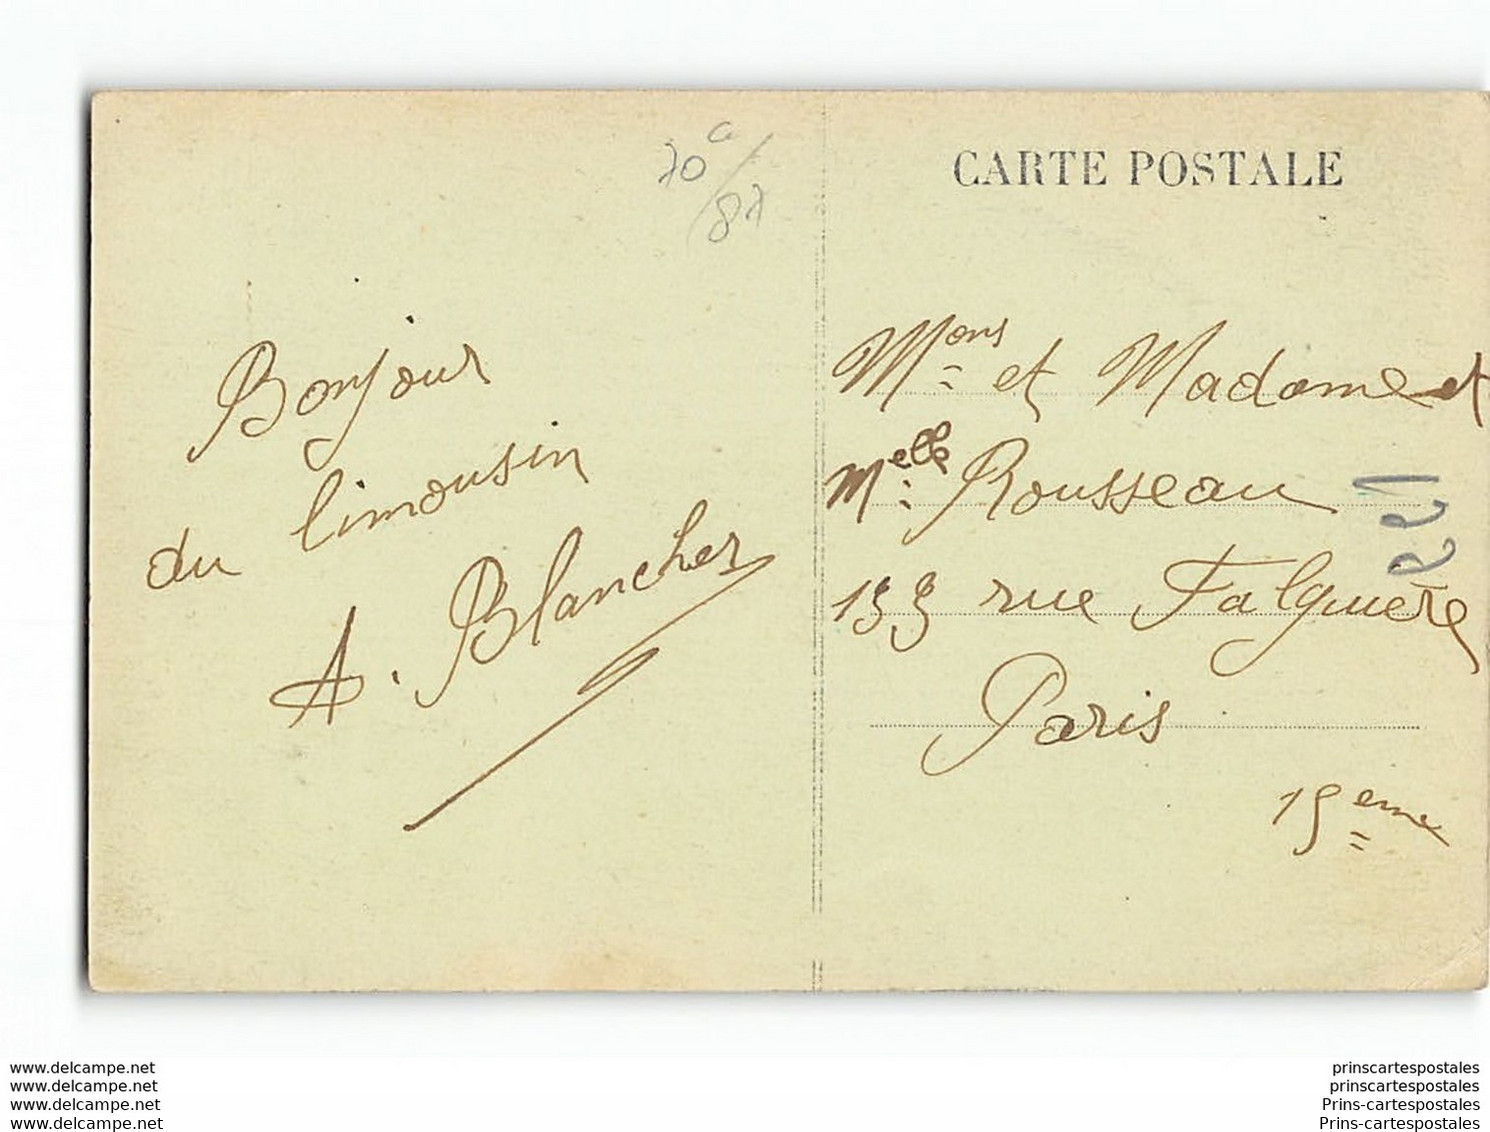 70c/87
CARTE POSTALE
Bonjour
du limousin
A. Blancher
Mons et Madame et
Melle Rousseau
133 rue Falguière
Paris
15eme
www.delcampe.net
www.delcampe.net
www.delcampe.net
www.delcampe.net
prinscartespostales
prinscartespostales
Prins-cartespostales
Prins-cartespostales